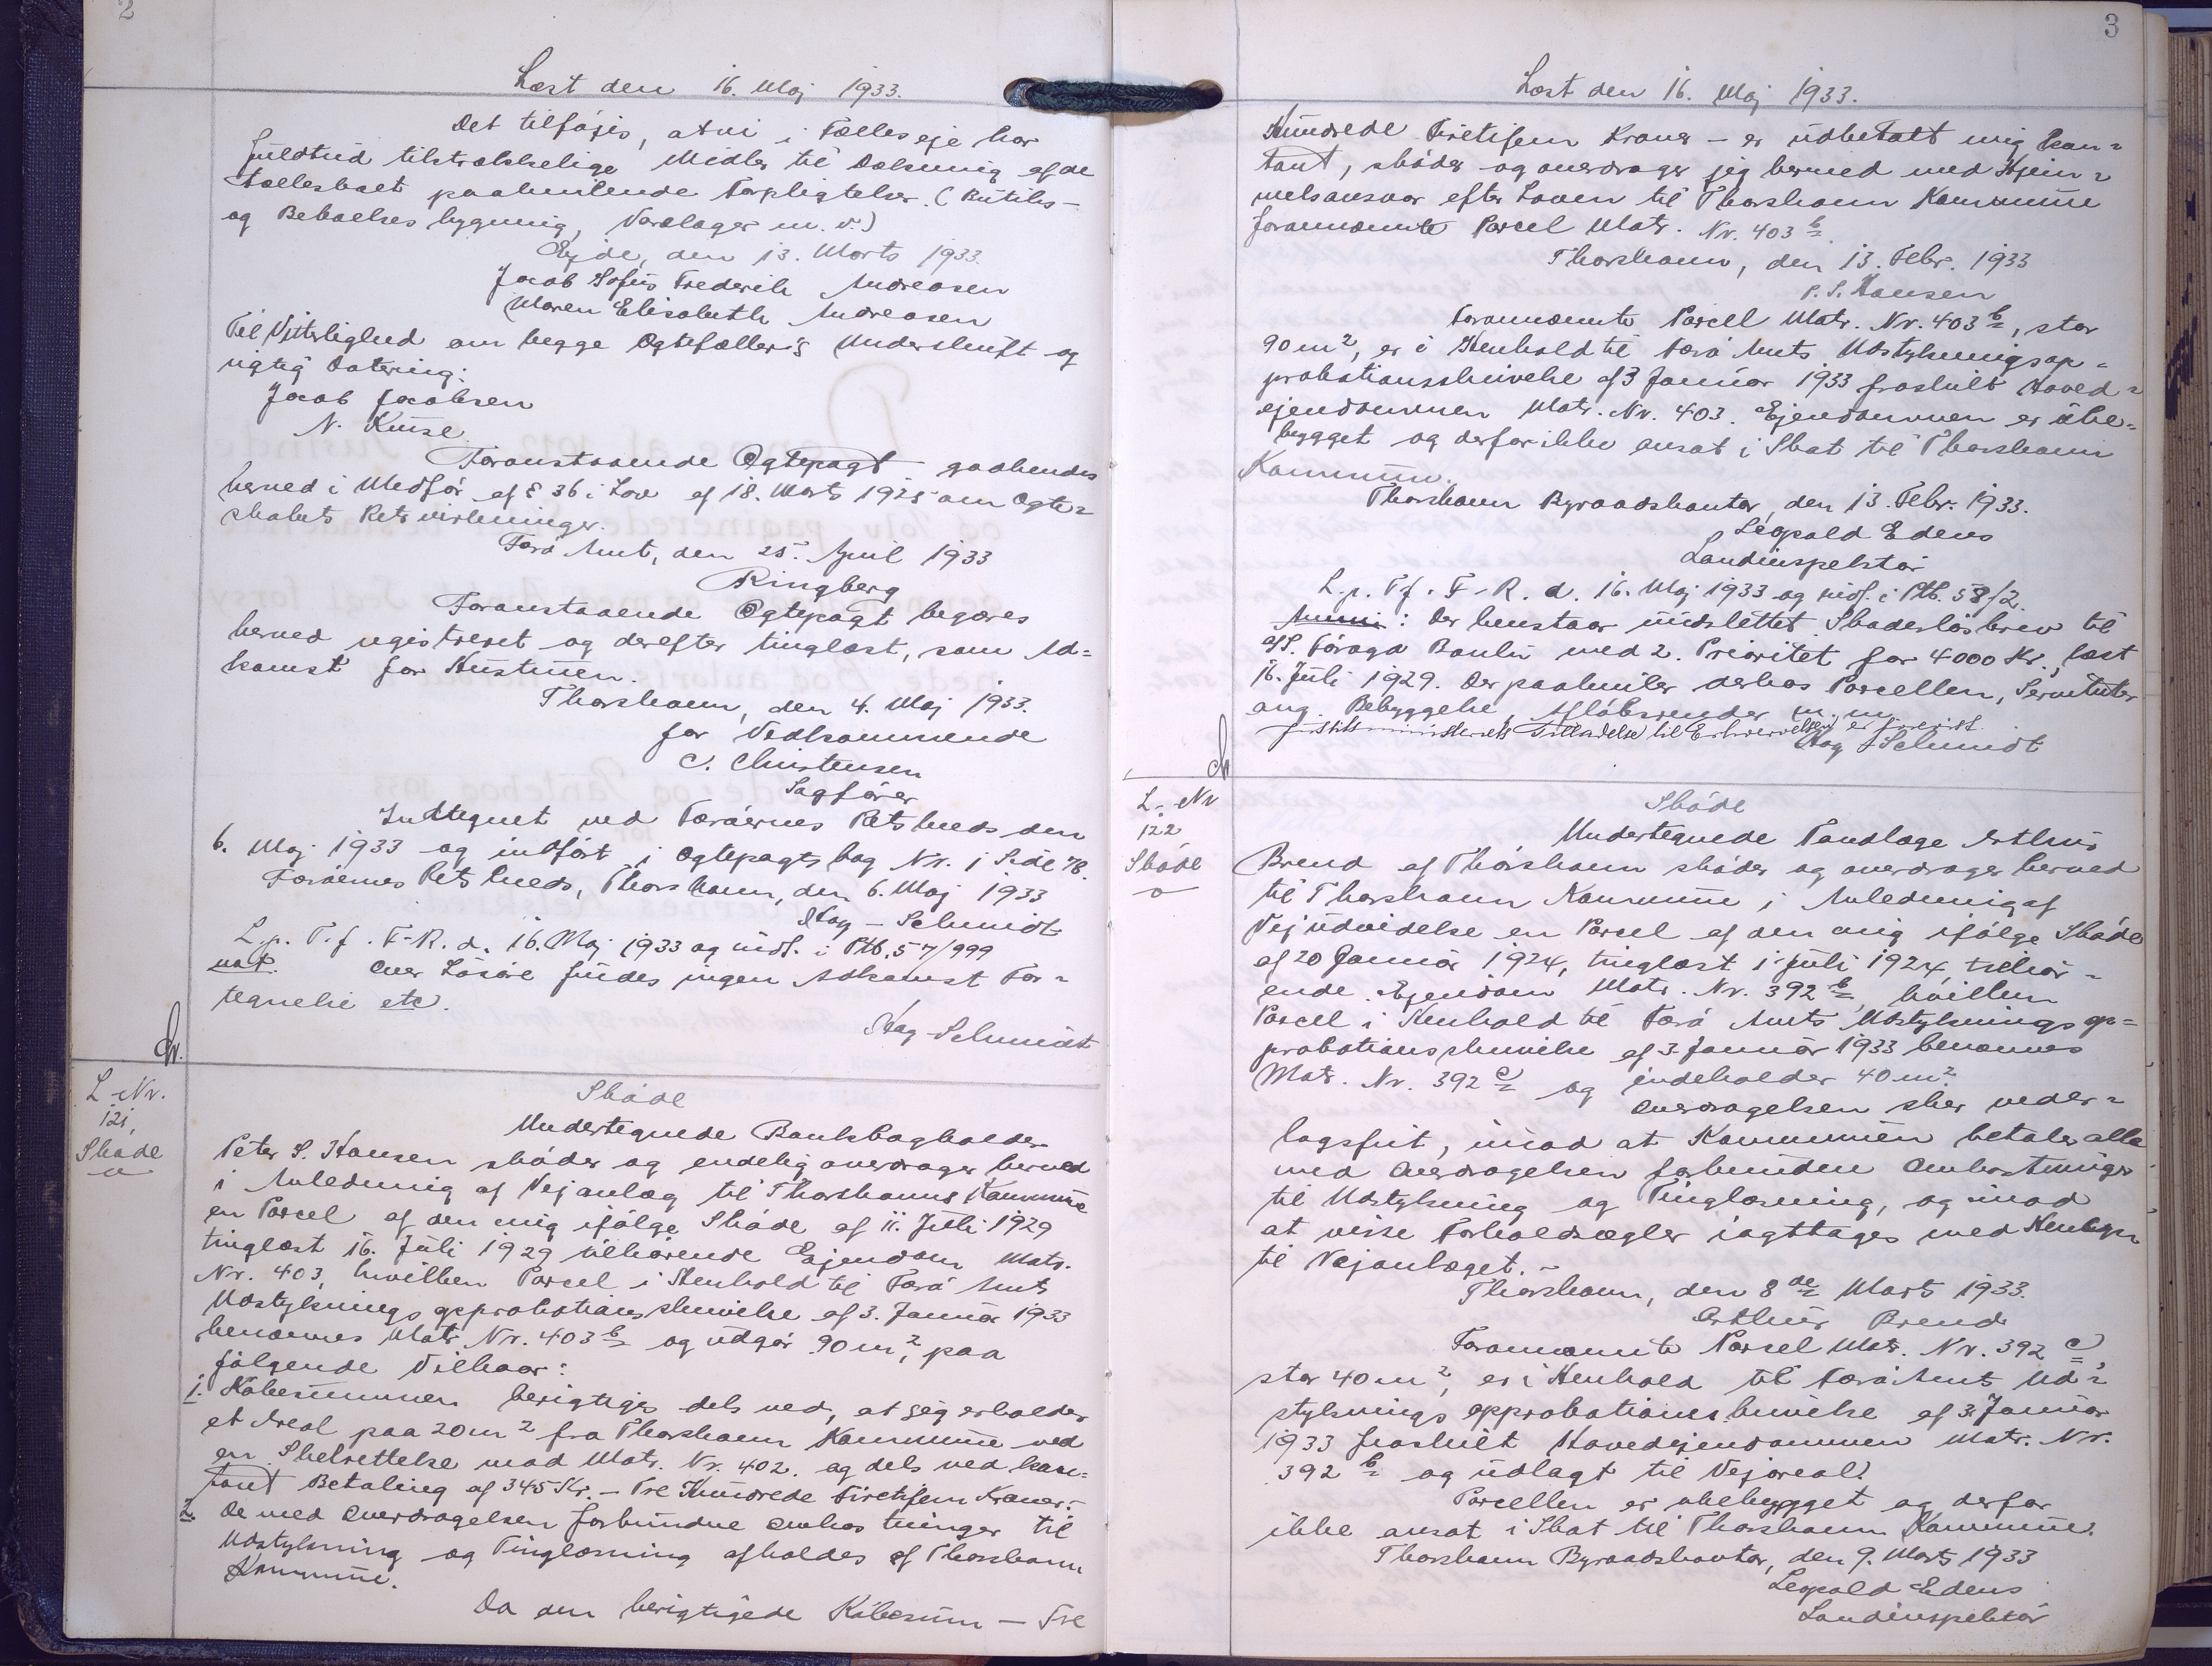 2
Læst den 16. Maj 1933.
Det tilføjes, at vi i Fælleseje har
fuldtud tilstrækkelige Midler til Dækning af de
Fællesboet paahvilende Forpligtelser. (Butiks-
og Beboelsesbygning, Varelager m.v.)
Ejde, den 13. Marts 1933.
Jacob Sofus Frederik Andreasen
Maren Elisabeth Andreasen
Til Vitterlighed om begge Ægtefæller's Underskrift og
rigtig Datering:
Jacob Jacobsen
N. Kruse.
Foranstaaende Ægtepagt godkendes
herved i Medfør af § 36 i Lov af 18. Marts 1925 om Ægte=
skabets Retsvirkninger.
Færø Amt, den 25. April 1933
Ringberg
Foranstaaende Ægtepagt begæres
herved registreret og derefter tinglæst, som Ad=
komst for Hustruen.
Thorshavn, den 4. Maj 1933.
for Vedkommende
C. Christensen
Sagfører
Indtegnet ved Færøernes Retskreds den
6. Maj 1933 og indført i Ægtepagtsbog Nr. 1 Side 78.
Færøernes Retskreds, Thorshavn, den 6. Maj 1933
Stag-Schmidt
L.p. T.f. F-R. d. 16. Maj 1933 og indf. i Ptb. 57/999
Over Løsøre findes ingen Adkomst For=
tegnelse etc.
Stag-Schmidt
L-Nr.
121,
Skøde
Skøde
Undertegnede Bankbogholder
Peter S. Hansen skøder og endelig overdrager herved
i Anledning af Vejanlæg til Thorshavns Kommune
en Parcel af den mig ifølge Skøde af 11. Juli 1929
tinglæst 16. Juli 1929 tilhørende Ejendom Matr.
Nr. 403, hvilken Parcel i Henhold til Færø Amts
Udstykningsapprobationsskrivelse af 3. Januar 1933
benævnes Matr. Nr. 403 b og udgør 90 m², paa
følgende Vilkaar:
1. Købesummen berigtiges dels ved, at jeg erholder
et Areal paa 20 m² fra Thorshavn Kommune ved
en Skelrettelse mod Matr. Nr. 402. og dels ved kon=
tant Betaling af 345 Kr. - Tre Hundrede Firetifem Kroner.-
2. De med Overdragelsen forbundne Omkostninger til
Udstykning og Tinglæsning afholdes af Thorshavn
Kommune.
Da den berigtigede Købesum — Tre
3
Læst den 16. Maj 1933.
Hundrede Firetifem Kroner - er udbetalt mig kon=
tant, skøder og overdrager jeg herved med Hjem=
melsansvar efter Loven til Thorshavn Kommune
forannævnte Parcel Matr. Nr. 403 b.
Thorshavn, den 13. Febr. 1933
P. S. Hansen
Forannævnte Parcel Matr. Nr. 403 b, stor
90 m², er i Henhold til Færø Amts Udstykningsap=
probationsskrivelse af 3 Januar 1933 fraskilt Hoved=
ejendommen Matr. Nr. 403. Ejendommen er ube=
bygget og derfor ikke ansat i Skat til Thorshavn
Kommune.
Thorshavn Byraadskontor, den 13. Febr. 1933.
Leopold Edens
Landinspektør
L.p. T.f. F-R. d. 16. Maj 1933 og indf. i Ptb. 58/2.
Anm: Der henstaar uudslettet Skadesløsbrev til
A/S. Føroya Banki med 2. Prioritet for 4000 Kr., læst
16. Juli 1929. Der paahviler derhos Parcellen, Servitutter
ang. Bebyggelse, Afløbsrender m.m.
Justitsministeriets Tilladelse til Erhvervelsen er forevist.
Stag-Schmidt
L-Nr
122
Skøde
Skøde
Undertegnede Tandlæge Arthur
Brend af Thorshavn skøder og overdrager herved
til Thorshavn Kommune i Anledning af
Vejudvidelse en Parcel af den mig ifølge Skøde
af 20 Januar 1924, tinglæst 1 Juli 1924, tilhør=
ende Ejendom Matr. Nr. 392 b, hvilken
Parcel i Henhold til Færø Amts Udstykningsap=
probationsskrivelse af 3. Januar 1933 benævnes
Matr. Nr. 392 c og indeholder 40 m².
Overdragelsen sker veder=
lagsfrit, imod at Kommunen betaler alle
med Overdragelsen forbundne Omkostninger
til Udstykning og Tinglæsning, og imod
at visse Forholdsregler iagttages med Hensyn
til Vejanlæget.-
Thorshavn, den 8 de Marts 1933.
Arthur Brend
Forannævnte Parcel Matr. Nr. 392 c,
stor 40 m², er i Henhold til Færø Amts Ud=
stykningsapprobationsskrivelse af 3. Januar
1933 fraskilt Hovedejendommen Matr. Nr.
392 b og udlagt til Vejareal.
Parcellen er ubebygget og derfor
ikke ansat i Skat til Thorshavn Kommune.
Thorshavn Byraadskontor, den 9. Marts 1933
Leopold Edens
Landinspektør